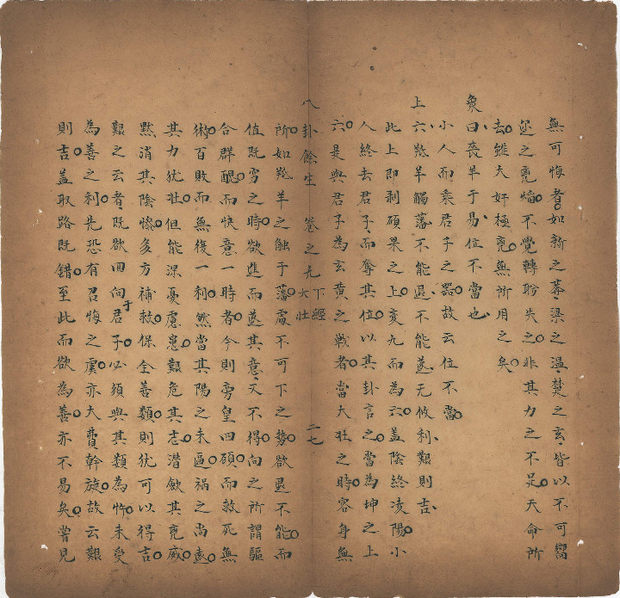 無可悔者如新之莽梁之溫楚之玄皆以不可嚮
邇之兇焰不覺轉盼失之非其力之不足天命所
去雖大奸極兇無所用之矣
象曰喪羊于易位不當也
小人而乘君子之器故云位不當
上六羝羊觸藩不能退不能遂无攸利艱則吉
此上即剥碩果之上变九而為六蓋陰終凌陽小
人終去君子而奪其位以其卦言之當為坤之上
六是與君子為玄黄之戰者當大壯之時容身無
八卦餘生 卷之九 下經 大壯 二七
所如羝羊之触于藩處不可下之势欲退不能而
值既窮之時欲進而遂其意又不得向之所謂驅
合群醜而快意一時者今則旁皇四顧而救死無
術百敗而無復一利然當其陽之未逼禍之尚遠
其力犹壯但能深憂慮患艱危其志潛斂其兇威
黙消其陰慘多方補救保全善類則犹可以得吉
艱之云者既欲回向于君子必須與其類為忤未受
為善之利先恐有召悔之虞亦大費幹旋故云艱
則吉蓋取路既錯至此而欲為善亦不易矣嘗見